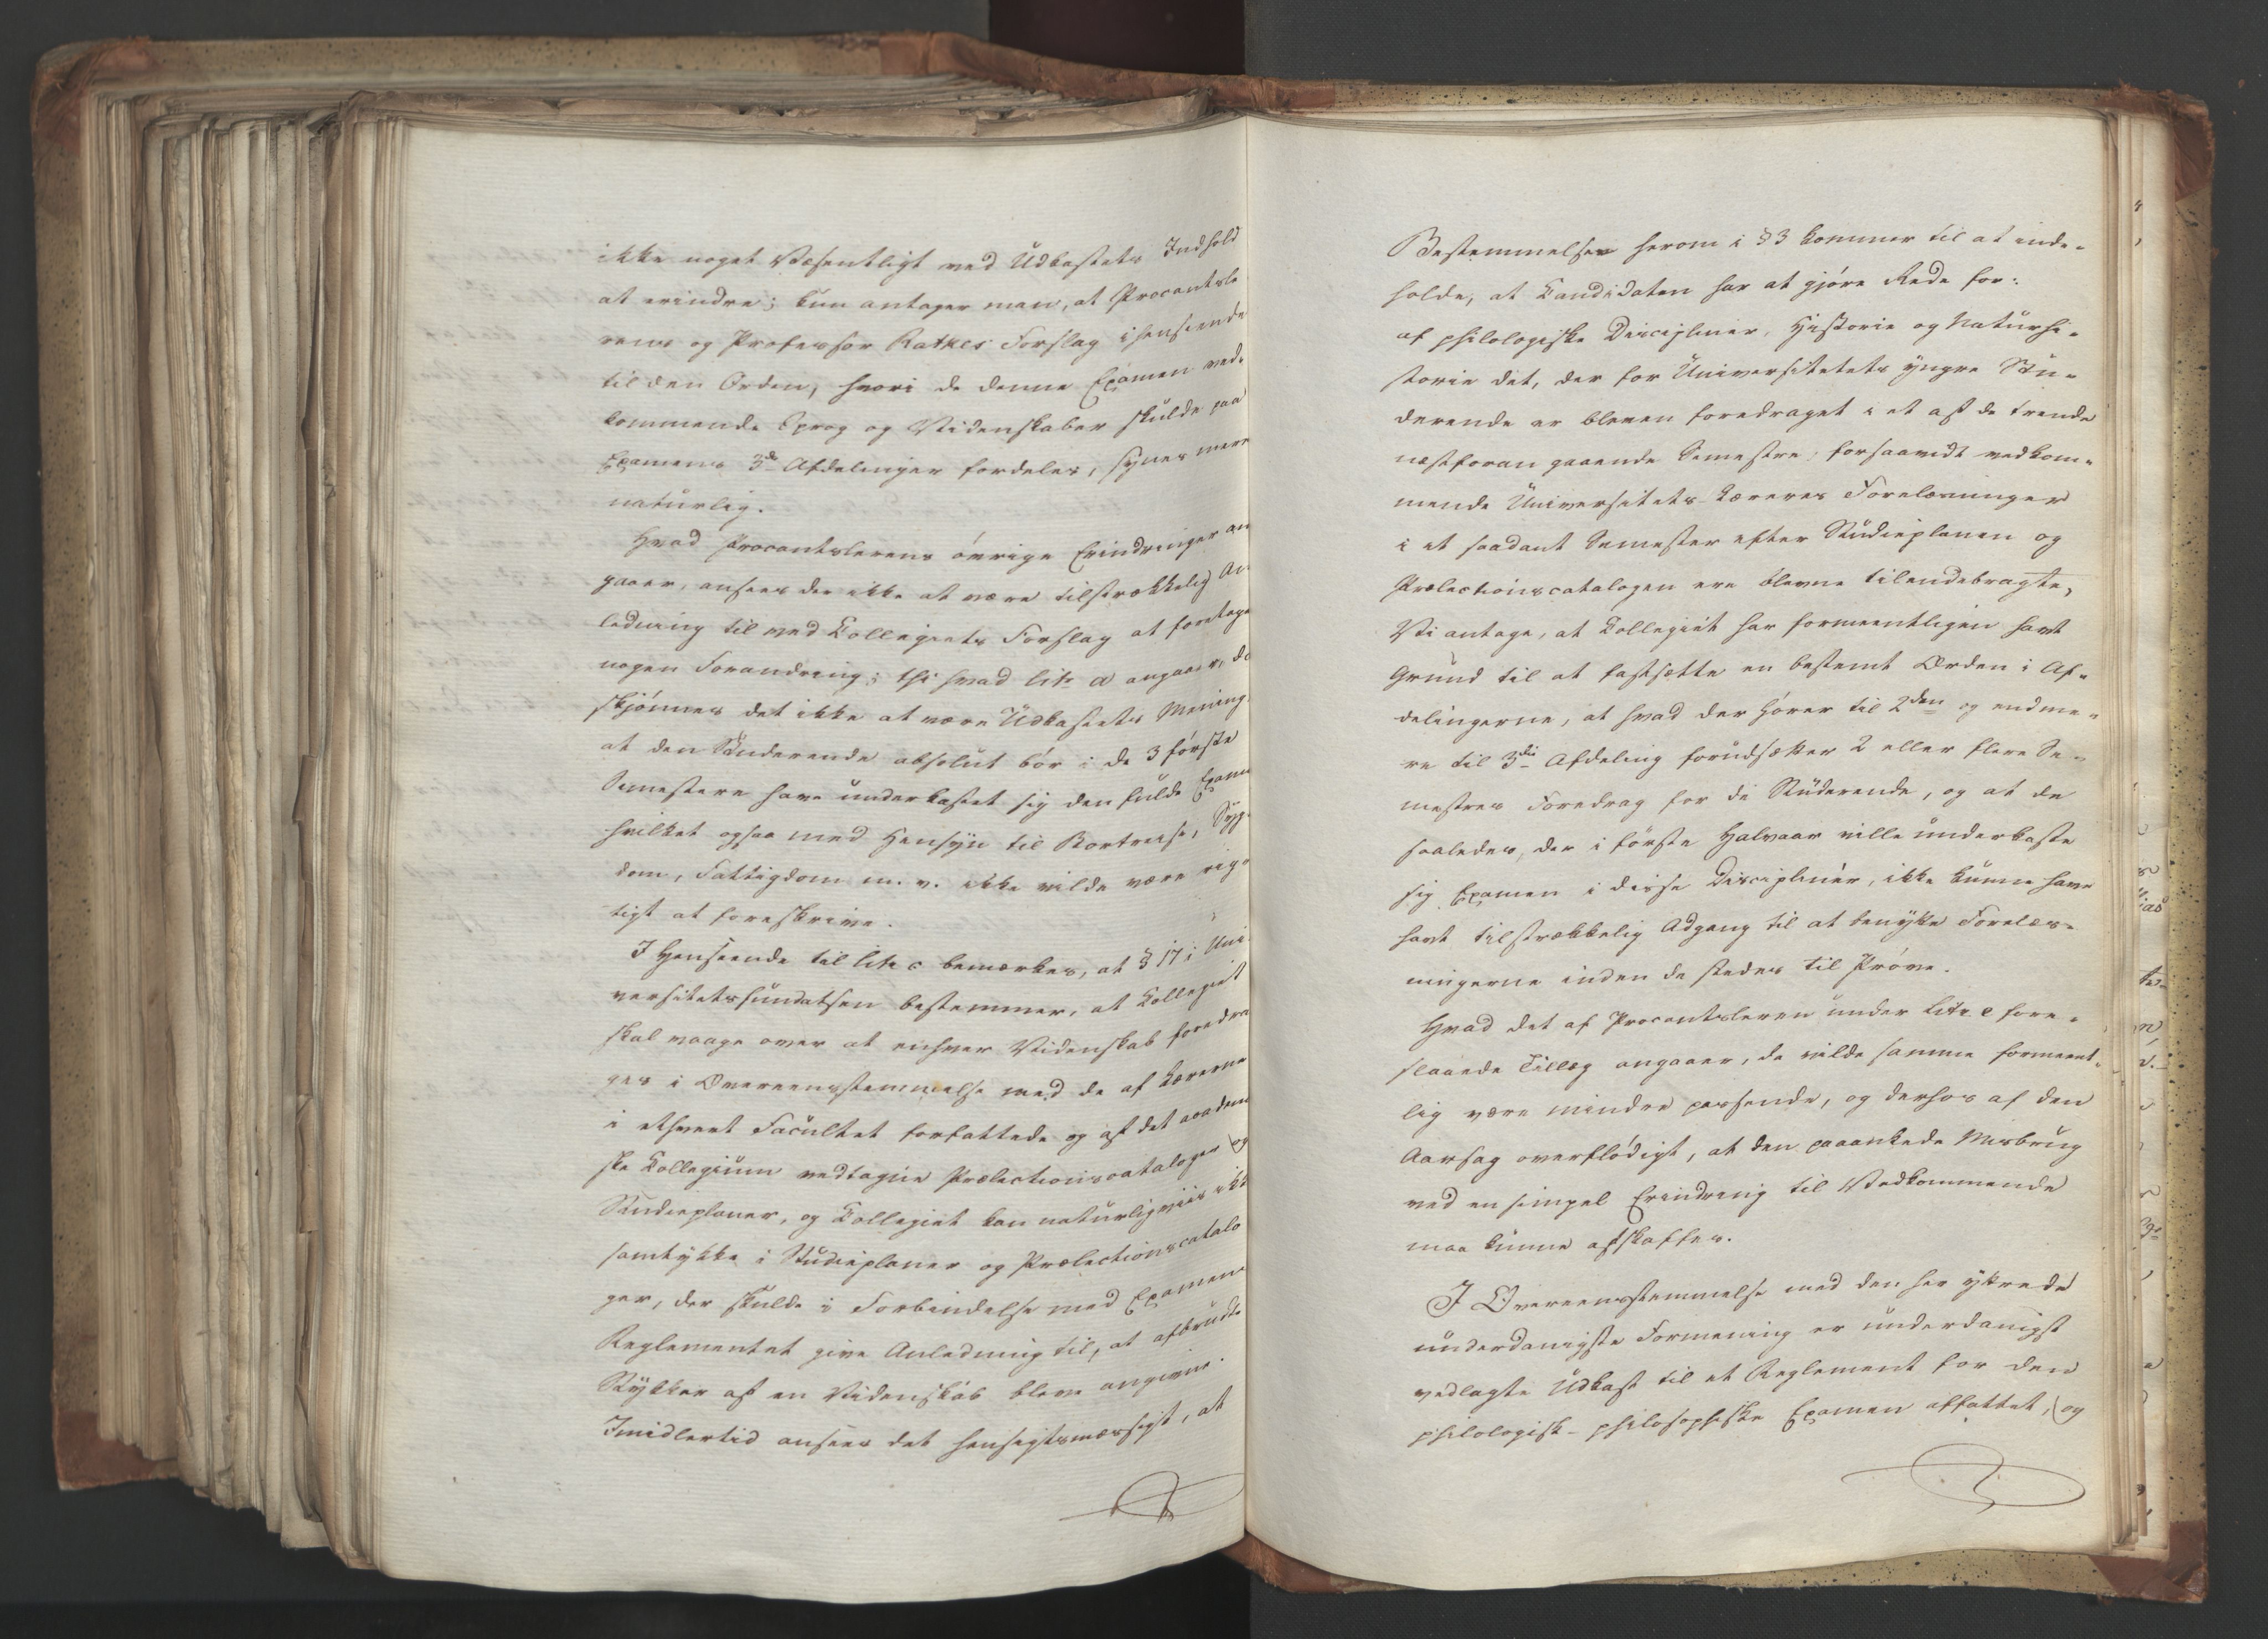 ikke noget Væsentligt ved Udkastets Indhold
at erindre; kun antager man, at Procantsle
rens og Professor Rathkes Forslag i henseende
til den Orden, hvori de denne Examen ved-
kommende Sprog og Videnskaber skulde paa
Examens 3de Afdelinger fordeles, synes mere
naturlig.
Hvad Procantslerens övrige Erindringer an
gaaer, ansees der ikke at være tilstrækkelig An-
ledning til ved Collegiets Forslag at foretage
nogen Forandring; thi hvad litr a angaaer, da
skjönnes det ikke at være Udkastets Mening,
at den Studerende absolut bör i de 3 förste
Semestere have underkastet sig den fulde Examen
hvilket ogsaa med Hensyn til Bortreise, Syg-
dom, Fattigdom m. v. ikke vilde være rig-
tigt at foreskrive.
I Henseende til litr c bemærkes, at § 17 i Uni-
versitetsfundatsen bestemmer, at Collegiet
skal vaage over at enhver Videnskab foredra
ges i Overeensstemmelse med de af Lærerne
i ethvert Facultet forfattede og af det acadmi
ske Collegium vedtagne Prælectionscataloger og
Studieplaner, og Collegiet kan naturligviis ikke
samtykke i Studieplaner og Prælectionscatalo
ger, der skulde i Forbindelse med Examens
Reglementet give Anledning til, at afbrudte
Stykker af en Videnskab bleve angivne.
Imidlertid ansees det hensigtsmæssigt, at
Bestemmelsen herom i § 3 kommer til at inde-
holde, at Candidaten har at gjöre Rede for:
af philologiske Discipliner, Historie og Naturhi-
storie det, der for Universitetets yngre Stu-
derende er bleven foredraget i et af de trende
næstforangaaende Semestre, forsaavidt vedkom-
mende Universitets-Læreres Forelæsninger
i et saadant Semester efter Studieplanen og
Prælectionscatalogen ere blevne tilendebragte,
Vi antage, at Collegiet har formeentligen havt
Grund til at fastsætte en bestemt Orden i Af-
delingerne, at hvad der hörer til 2den og endme-
re til 3die Afdeling forudsætter 2 eller flere Se-
mestres Foredrag for de Studerende, og at de
saaledes, der i förste Halvaar ville underkaste
sig Examen i disse Discipliner, ikke kunne have
havt tilstrækkelig Adgang til at benytte Forelæs-
ningerne inden de stedes til Pröve.
Hvad det af Procantsleren under Litr. e fore-
slaaede Tillæg angaaer, da vilde samme formeent-
lig være mindre passende, og derhos af den
Aarsag overflödigt, at den paaankede Misbrug
ved en simpel Erindring til Vedkommende
maa kunne afskaffes.
I Overeensstemmelse med den her yttrede
underdanigste Formening er underdanigst
vedlagte Udkast til et Reglement for den
philologisk-philosophiske Examen affattet, og